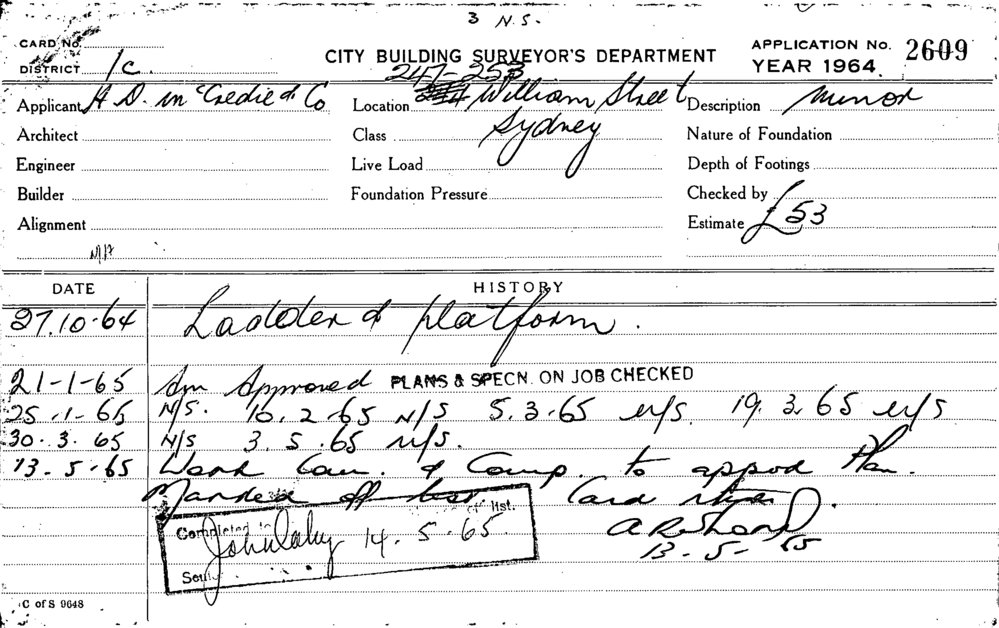 3 N.S.
CARD No.
DISTRICT 1c.
CITY BUILDING SURVEYOR'S DEPARTMENT
APPLICATION No. 2609
YEAR 1964.
Applicant H. D. McCredie & Co
Location 247-253 William Street
Sydney
Description Minor
Architect
Class
Nature of Foundation
Engineer
Live Load
Depth of Footings
Builder
Foundation Pressure
Checked by
Alignment
Estimate £53
DATE
HISTORY
27.10.64 Ladder & platform.
21-1-65 Approved PLANS & SPECN. ON JOB CHECKED
25.1.65 N/S. 10.2.65 N/S 5.3.65 N/S. 19.3.65 N/S
30.3.65 N/S 3.5.65 N/S.
13.5.65 Work Com. & Comp. to approd Plan.
Marked off Card
13-5-65
Completed list.
14.5.65.
C of S 9648